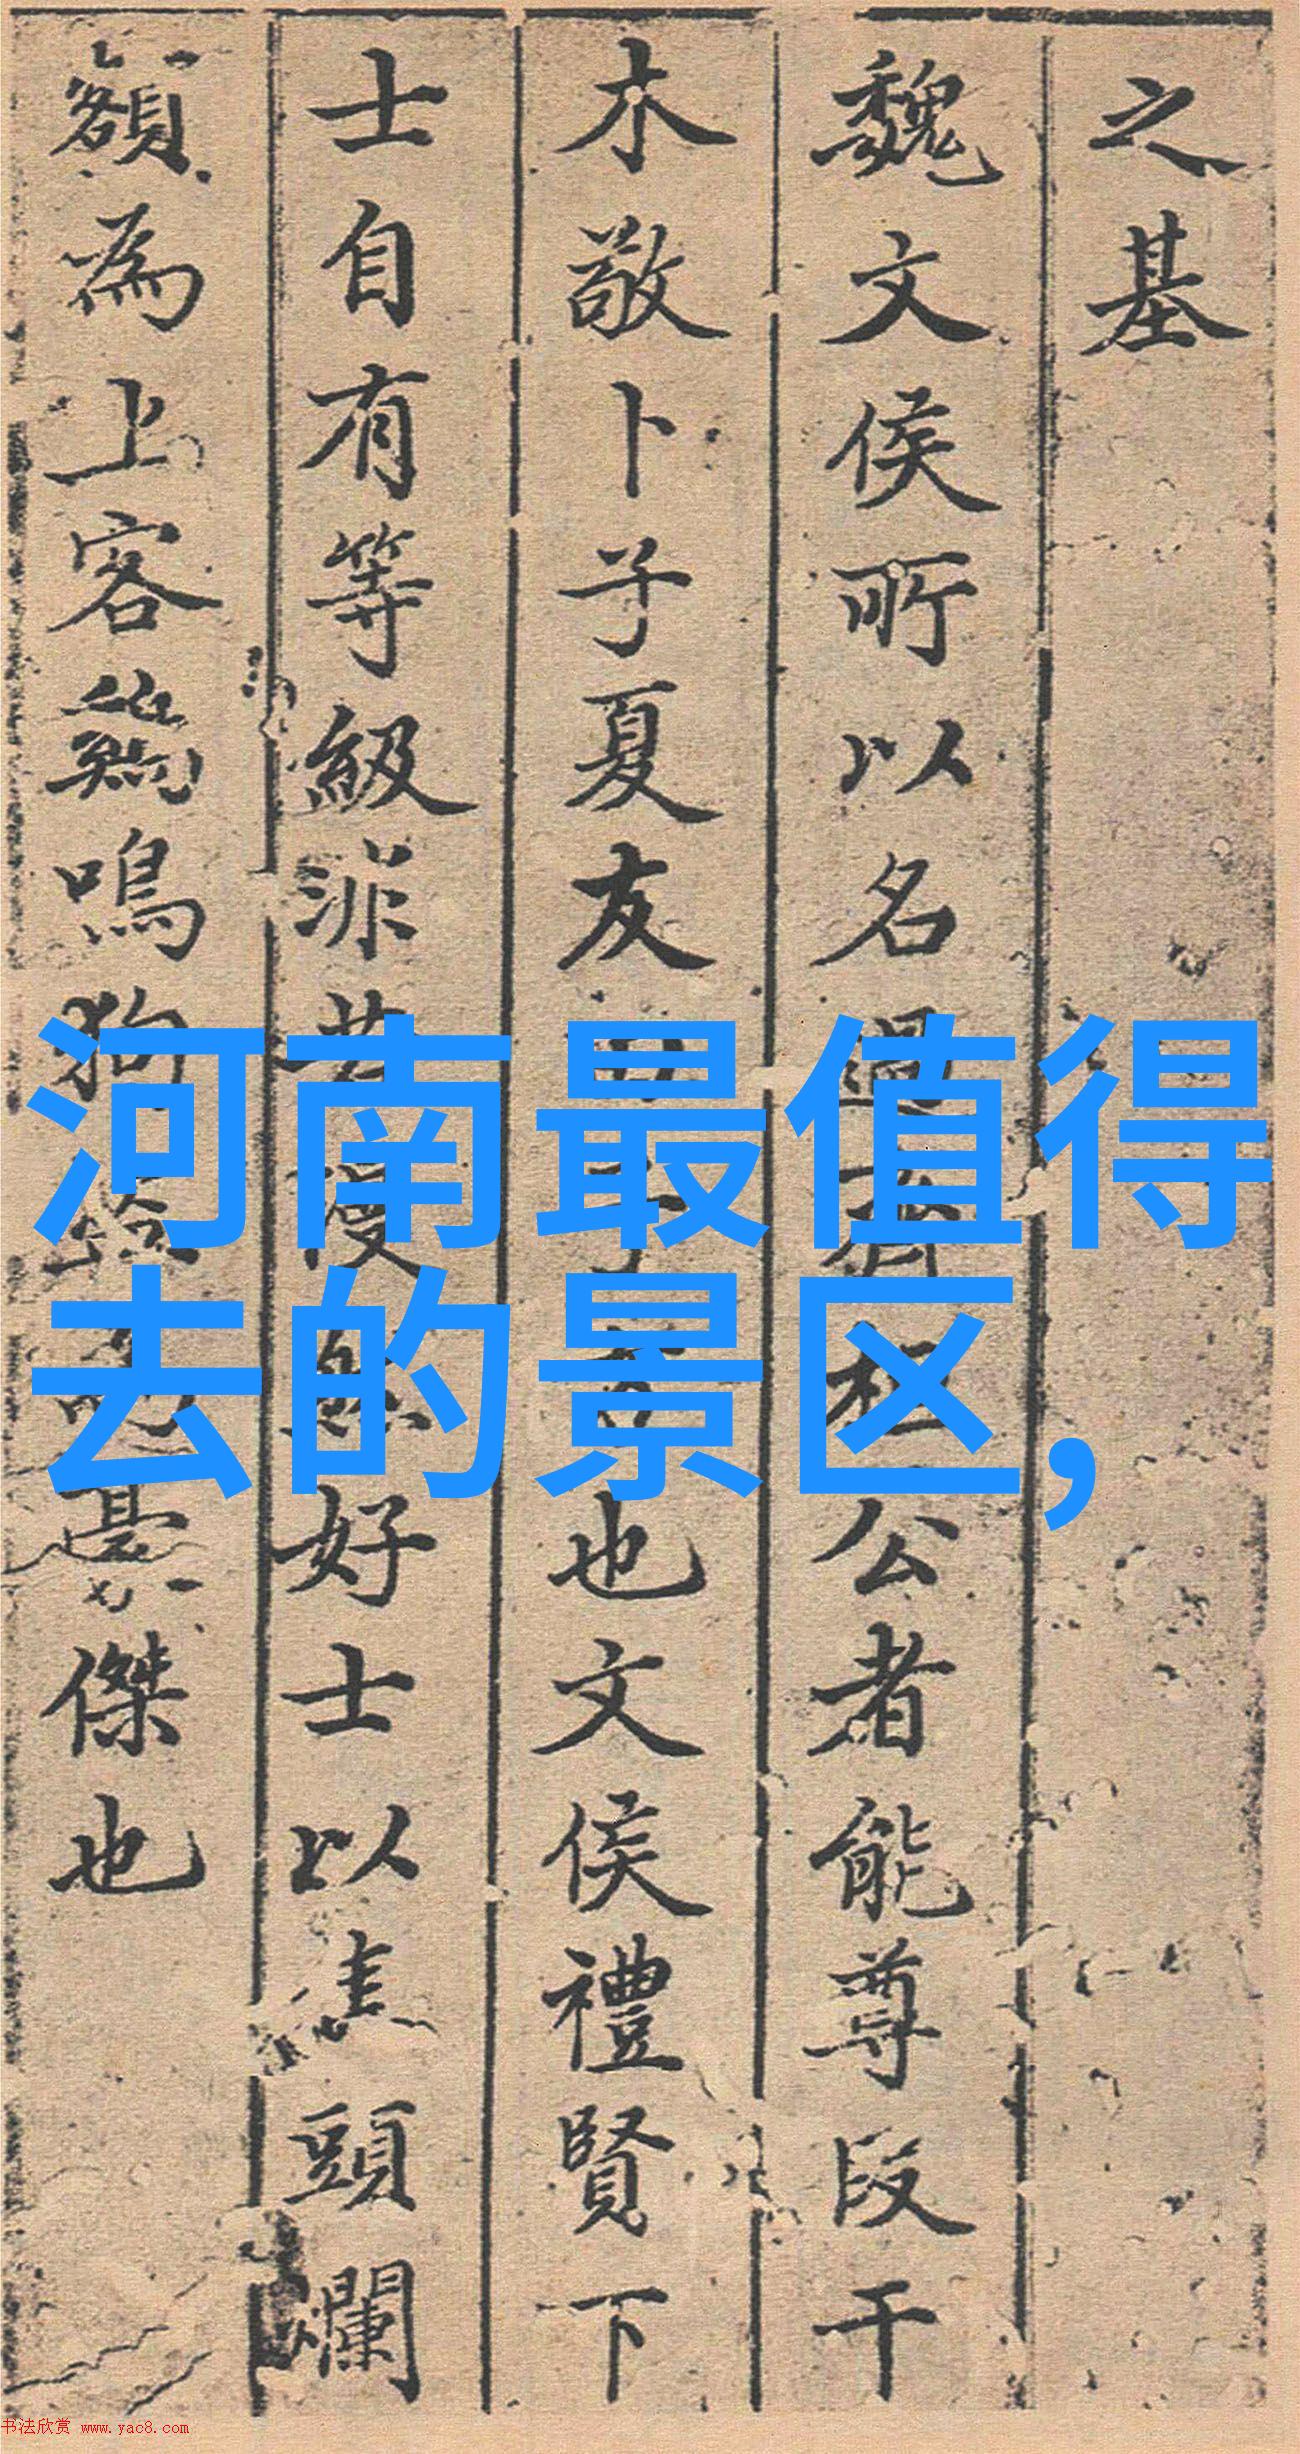 之基
魏文侯所以名過齊桓公者能尊段干
木敬卜子夏友田子方也文侯禮賢下
士自有等級好士以焦頭爛
額為上客鷄鳴狗盜豪傑也
河南最值得
去的景区,
书法欣赏 www.yac8.com